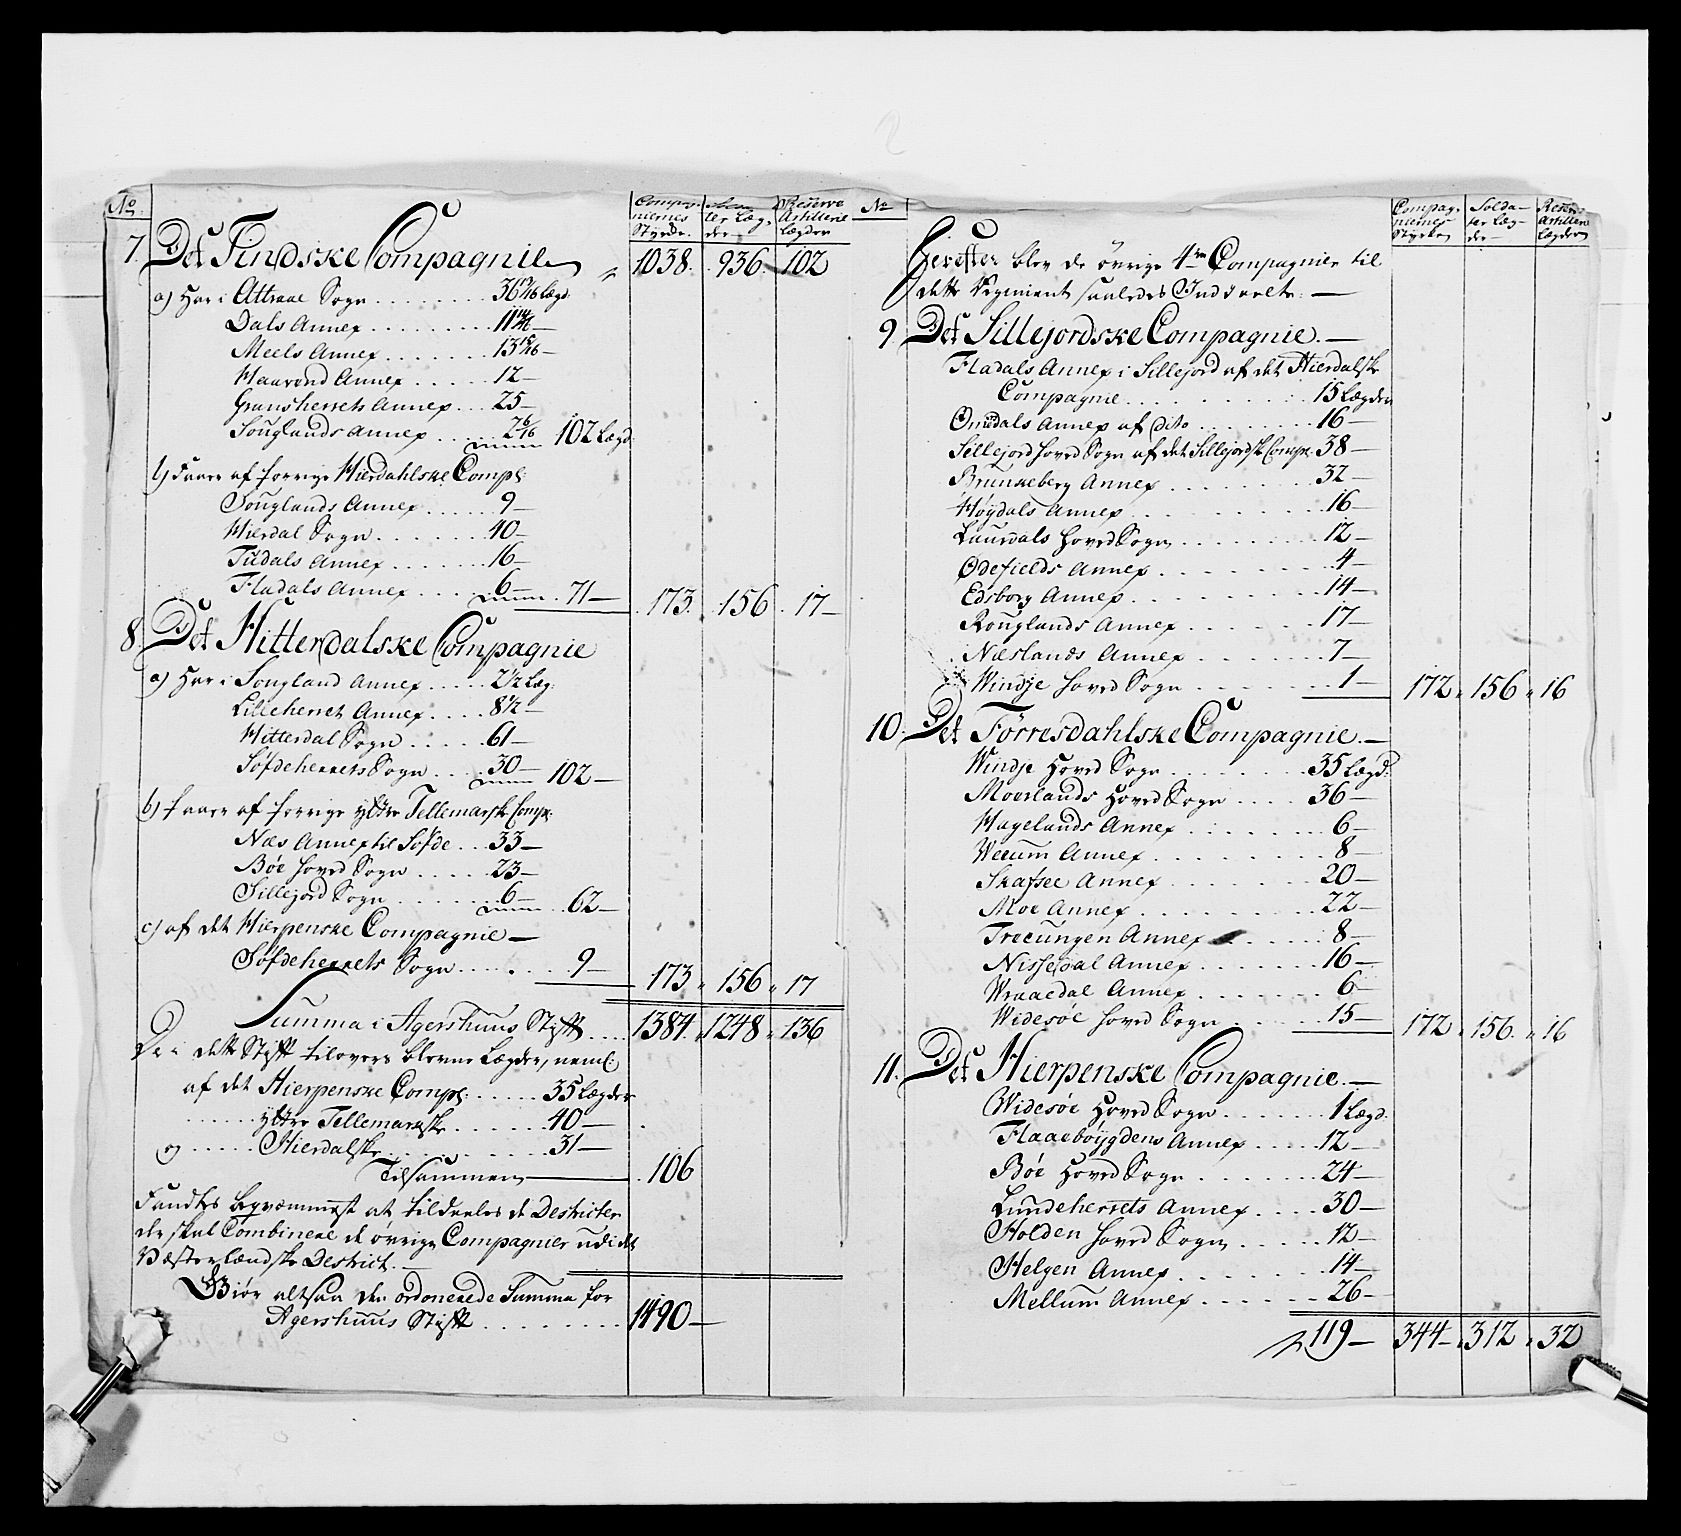 No
Compag-
niernes
Styrke
Solda-
ter Læg-
der
Reserve
Artillerie
Lægder
7. Det Tindske Compagnie 1038. 936. 102
a) Har i Attraae Sogn 36 Lægd.
Dals Annex 11
Meels Annex 13
Haavend Annex 12
Gransherrets Annex 25
Souglands Annex 2 6/16 102 Lægd.
b) Faaer af forrige Hierdahlske Comp:
Souglands Annex 9
Hierdal Sogn 40
Tudals Annex 16
Fladals Annex 6 71 173. 156. 17
8. Det Hitterdalske Compagnie
a) Har i Sougland Annex 2 1/2 Læg:
Lilleherret Annex 8 1/2
Hitterdal Sogn 61
Søfdeherrets Sogn 30 102
b) faaer af forrige ÿttre Tellemarske Comp:
Næs Annex til Søfde 33
Bøe Hoved Sogn 23
Sillejord Sogn 6 62
c) af det Hierpenske Compagnie
Søfdeherrets Sogn 9 173. 156. 17
Summa i Agershuus Stift 1384. 1248. 136
De i dette Stift tilovers blevne Lægder, neml:
af det Hierpenske Comp: 35 Lægder
ÿttre Tellemarkske 40
og Hierdalske 31
Tilsammen 106
Fandtes beqvemmest at tildeeles de Districter
der skal Combinere de øvrige Compagnier udi det
Vesterlændske District.
Giør altsaa den ordonerede Summa for
Agershuus Stift 1490
No
Compag-
niernes
Styrke
Solda-
ter Læg-
der
Reserve
Artillerie
Lægder
Herefter blev de øvrige 4re Compagnier til
dette Regiment saaledes Inddeelte:
9 Det Sillejordske Compagnie.
Fladals Annex i Sillejord af det Hierdalske
Compagnie 15 Lægder
Omdals Annex af dito 16
Sillejord Hoved Sogn af det Sillejordske Comp: 38
Brunkeberg Annex 32
Høydals Annex 16
Laurdals Hoved Sogn 12
Ødefields Annex 4
Edsborg Annex 14
Rouglands Annex 17
Næslands Annex 7
Windje Hoved Sogn 1 172. 156. 16
10. Det Førresdahlske Compagnie.
Windje Hoved Sogn 35 Lægd:
Moorlands Hoved Sogn 36
Hagelands Annex 6
Weeum Annex 8
Skafsee Annex 20
Moe Annex 22
Treeungen Annex 8
Nissedal Annex 16
Wraaedal Annex 6
Widesøe Hoved Sogn 15 172. 156. 16
11. Det Hierpenske Compagnie.
Widesøe Hoved Sogn 1 Lægd.
Flaaebøygdens Annex 12
Bøe Hoved Sogn 24
Lundeherrets Annex 30
Holden Hoved Sogn 12
Helgen Annex 14
Mellum Annex 26
119 344 312 32